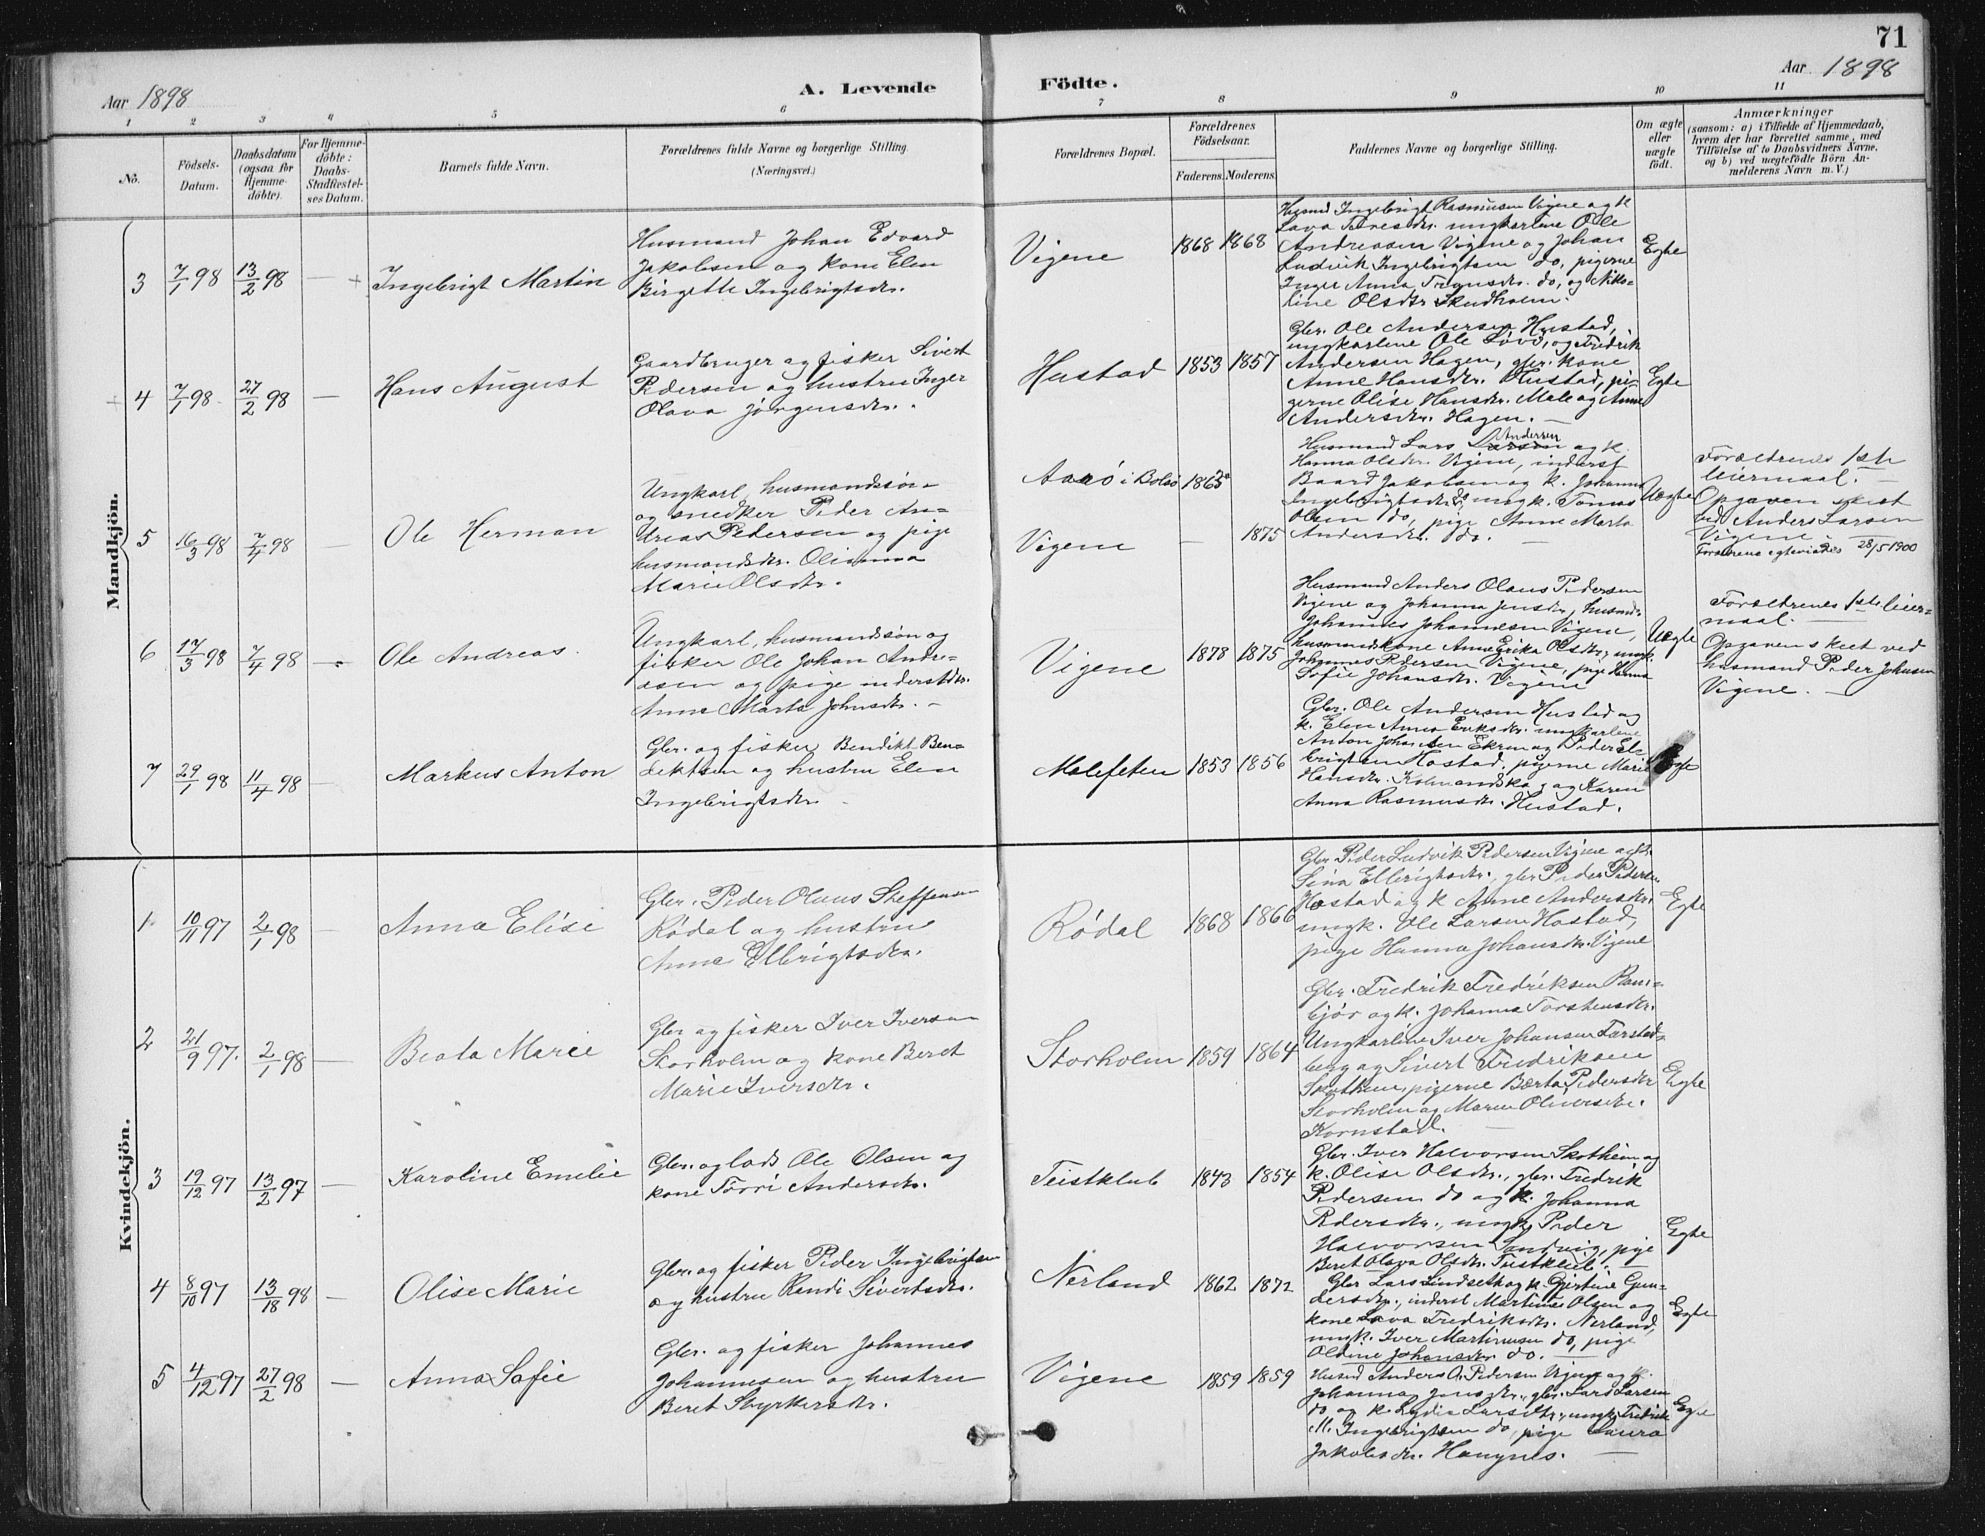 71
Aar 1898
A. Levende
Födte.
Aar 1898
1 2 3 4 5 6 7 8 9 10 11
No.
Födsels-
Datum.
Daabsdatum
(ogsaa for
Hjemme-
döbte).
For Hjemme-
döbte:
Daabs-
Stadfæstel-
ses Datum.
Barnets fulde Navn.
Forældrenes fulde Navne og borgerlige Stilling
(Næringsvei.)
Forældrenes Bopæl.
Forældrenes
Födselsaar.
Faderens. Moderens.
Faddernes Navne og borgerlige Stilling.
Om ægte
eller
uægte
födt.
Anmærkninger
(saasom: a) i Tilfælde af Hjemmedaab,
hvem der har forrettet samme, med
Tilföielse af to Daabsvidners Navne,
og b) ved uægtefödte Börn An-
melderens Navn m. V.)
Mandkjön.
3 7/1 98 13/2 98 — Ingebrigt Martin
Husmand Johan Edvard
Jakobsen og kone Elen
Birgitte Ingebrigtsdtr.
Vigene 1868 1868
Husmd Ingebrigt Rasmusen Vigene og k
Lava ungkarlene Ole
Andreasen Vigene og Johan
Ludvik Ingebrigtsen do, pigerne
Inger Anna do, og
line Olsdtr
Egte
4 7/1 98 27/2 98 — Hans August
Gaardbruger og fisker Sivert
Pedersen og hustru Inger
Olava Jörgensdtr.
Hustad 1853 1857
Gbr. Ole Andersen Hustad,
ungkarlene Ole og Fredrik
Andersen Hagen, gbr. kone
Anne Hansdtr. Hustad, pi-
gerne Olise Hansdtr. Male og Anne
Andersdtr. Hagen. —
Egte
5 16/3 98 7/4 98 — Ole Herman
Ungkarl, husmandssön
og snedker Peder An-
dreas Pedersen og pige
husmandsdtr. Olianna
Marie Olsdtr.
Aarö i Bolsö 1863
Vigene — 1875
Husmand Lars Larsen Andersen og k.
Hanna Olsdtr. Vigene, inderst
Baard Jakobsen og k. Johanna
Ingebrigtsdtr. do, ungk. Tomas
Olsen do, pige Anne Marta
Andersdtr. do. —
Uegte
Forældrenes 1ste
leiermaal. —
Opgaven skeet
ved Anders Larsen
Vigene. —
Forældrene egteviedes 28/5 1900
6 17/3 98 7/4 98 — Ole Andreas.
Ungkarl, husmandssön og
fisker Ole Johan Andre-
asen og pige inderstdtr.
Anne Marta Johnsdtr. —
Vigene 1878 1875
Husmand Anders Olaus Pedersen
Vigene og Johanna Jensdtr, husmd.
Johannes Johannesen Vigene,
husmandskone Anne Erika Olsdtr, ungk.
Johannes Pedersen Vigene, pige Hanna
Sofie Johansdtr. Vigene
Uegte
Forældrenes 1ste leier-
maal. —
Opgaven skeet ved
husmand Peder Johnsen
Vigene. —
7 29/1 98 11/4 98 — Markus Anton
Gbr. og fisker Bendikt Ben-
diktsen og hustru Elen
Ingebrigtsdtr. —
Malefeten 1853 1856
Gbr. Ole Andersen Hustad og
k. Elen Anna Eriksdtr. ungkarlene
Anton Johansen Ekren og Peder El-
brigtsen Hostad, pigerne Marie
Hansdtr. og Karen
Anna Rasmusdtr. Hustad.
Egte
Kvindekjön.
1 10/11 97 2/1 98 — Anna Elise
Gbr. Peder Olaus Steffensen
Rödal og hustru
Anne Elbrigtsdtr.
Rödal 1868 1866
Gbr. Peder Ludvik Pedersen Vigene og k.
Sina Elbrigtsdtr., gbr. Peder Pedersen
Hostad og k Anne Andersdtr.
ungk. Ole Larsen Hostad,
pige Hanna Johansdtr. Vigene
Egte
2 21/9 97. 2/1 98 — Beata Marie
Gbr og fisker Iver Iversen
Storholm og kone Beret
Marie Iversdtr.
Storholm 1859 1864
Gbr. Fredrik Fredriksen
og k. Johanna Torstensdtr.
Ungkarlene Iver Johansen Farstad-
berg og Sivert Fredriksen
Skothem, pigerne Bærta Pedersdtr
Storholm og Maren Oliversdtr.
Kornstad.
Egte
3 19/12 97 13/2 97 — Karoline Emelie
Gbr. og lods Ole Olsen og
kone Törri Andersdtr.
Teistklub 1843 1854
Gbr. Iver Halvorsen Skotheim og
k. Olise Olsdtr., gbr. Fredrik
Pedersen do og k. Johanna
Pedersdtr., ungk. Peder
Halvorsen Sandvig, pige
Beret Olava Olsdtr. Teistklub. —
Egte
4 8/10 97 13/18 98 — Olise Marie
Gbr. og fisker Peder Ingebrigtsen
og hustru Randi Sivertsdtr.
Nerland 1862 1872
Gbr Lars Lindset og k. Gjertine Gun-
dersdtr., inderst Martinus Olsen og
kone Lava Fredriksdtr. Nerland,
ungk. Iver Martinusen do, pige
Oldine Johansdtr do. —
Egte
5 4/12 97 27/2 98 — Anna Sofie
Gbr. og fisker Johannes
Johannesen og hustru
Beret Styrkersdtr.
Vigene 1859 1859
Husmd Anders O. Pedersen Vigene og k.
Johanna Jensdtr., gbr. Lars Larsen
do og k. Lydia Larsdtr., ungk. Fredrik
M. Ingebrigtsen do, pige Laura
Jakobsdtr. Hangnes. —
Egte